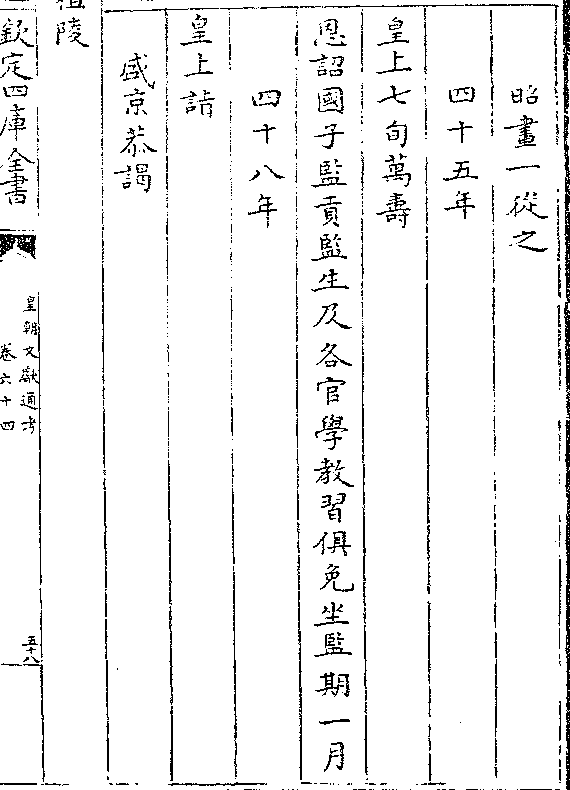 昭畫一從之
四十五年
皇上七旬萬壽
恩詔國子監貢監生及各官學教習俱免坐監期一月
四十八年
皇上詣
盛京恭謁
祖陵
欽定四庫全書
皇朝文獻通考
卷六十四
五十八